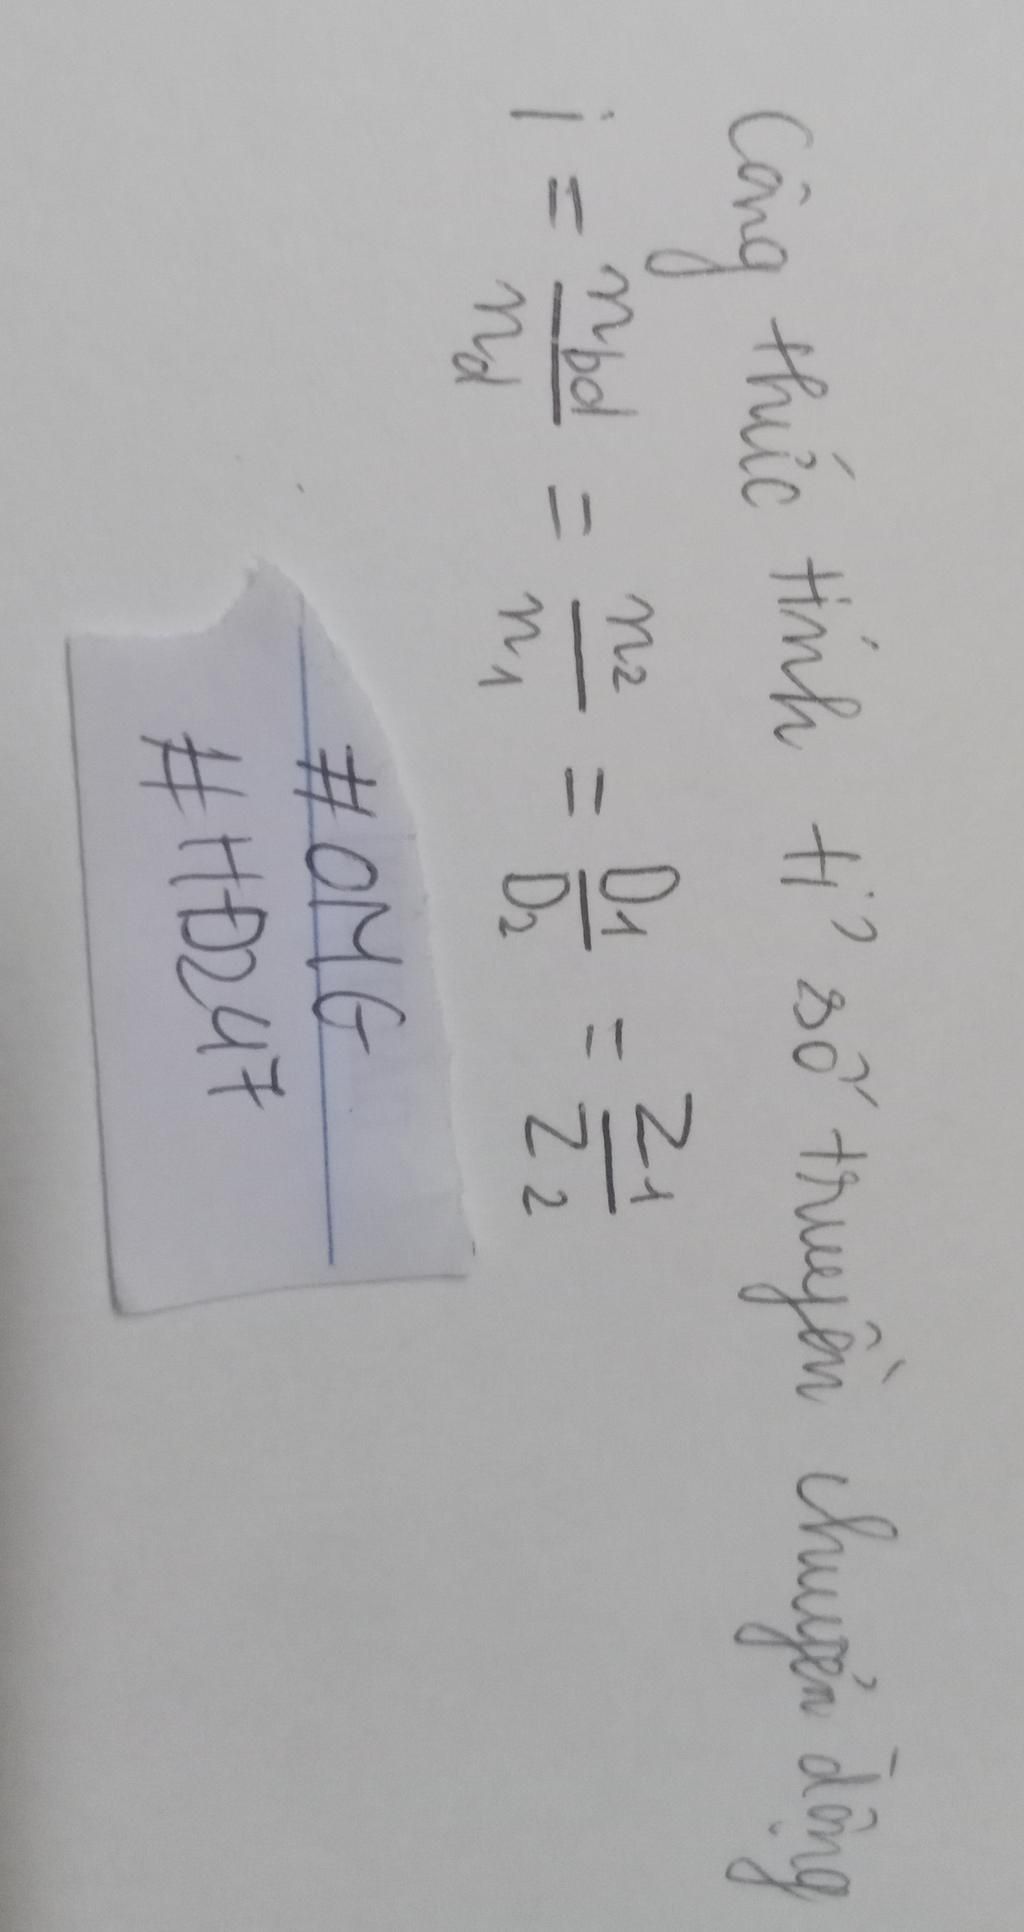 Công thức tính tỉ số truyền chuyển động
i = n_bd / n_d = n_2 / n_1 = D_1 / D_2 = Z_1 / Z_2
#OMG
#HD247